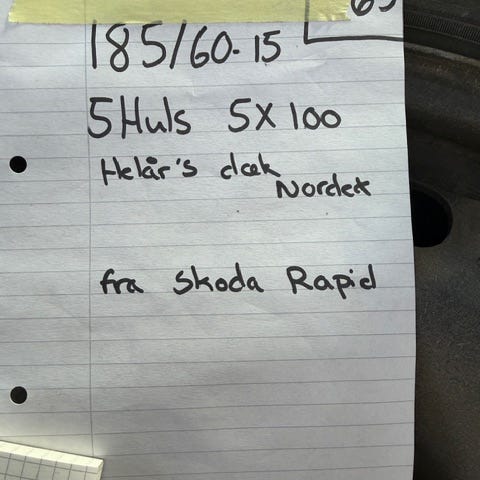 185/60-15
5 Huls 5X100
Helår's dæk
Nordex
fra Skoda Rapid